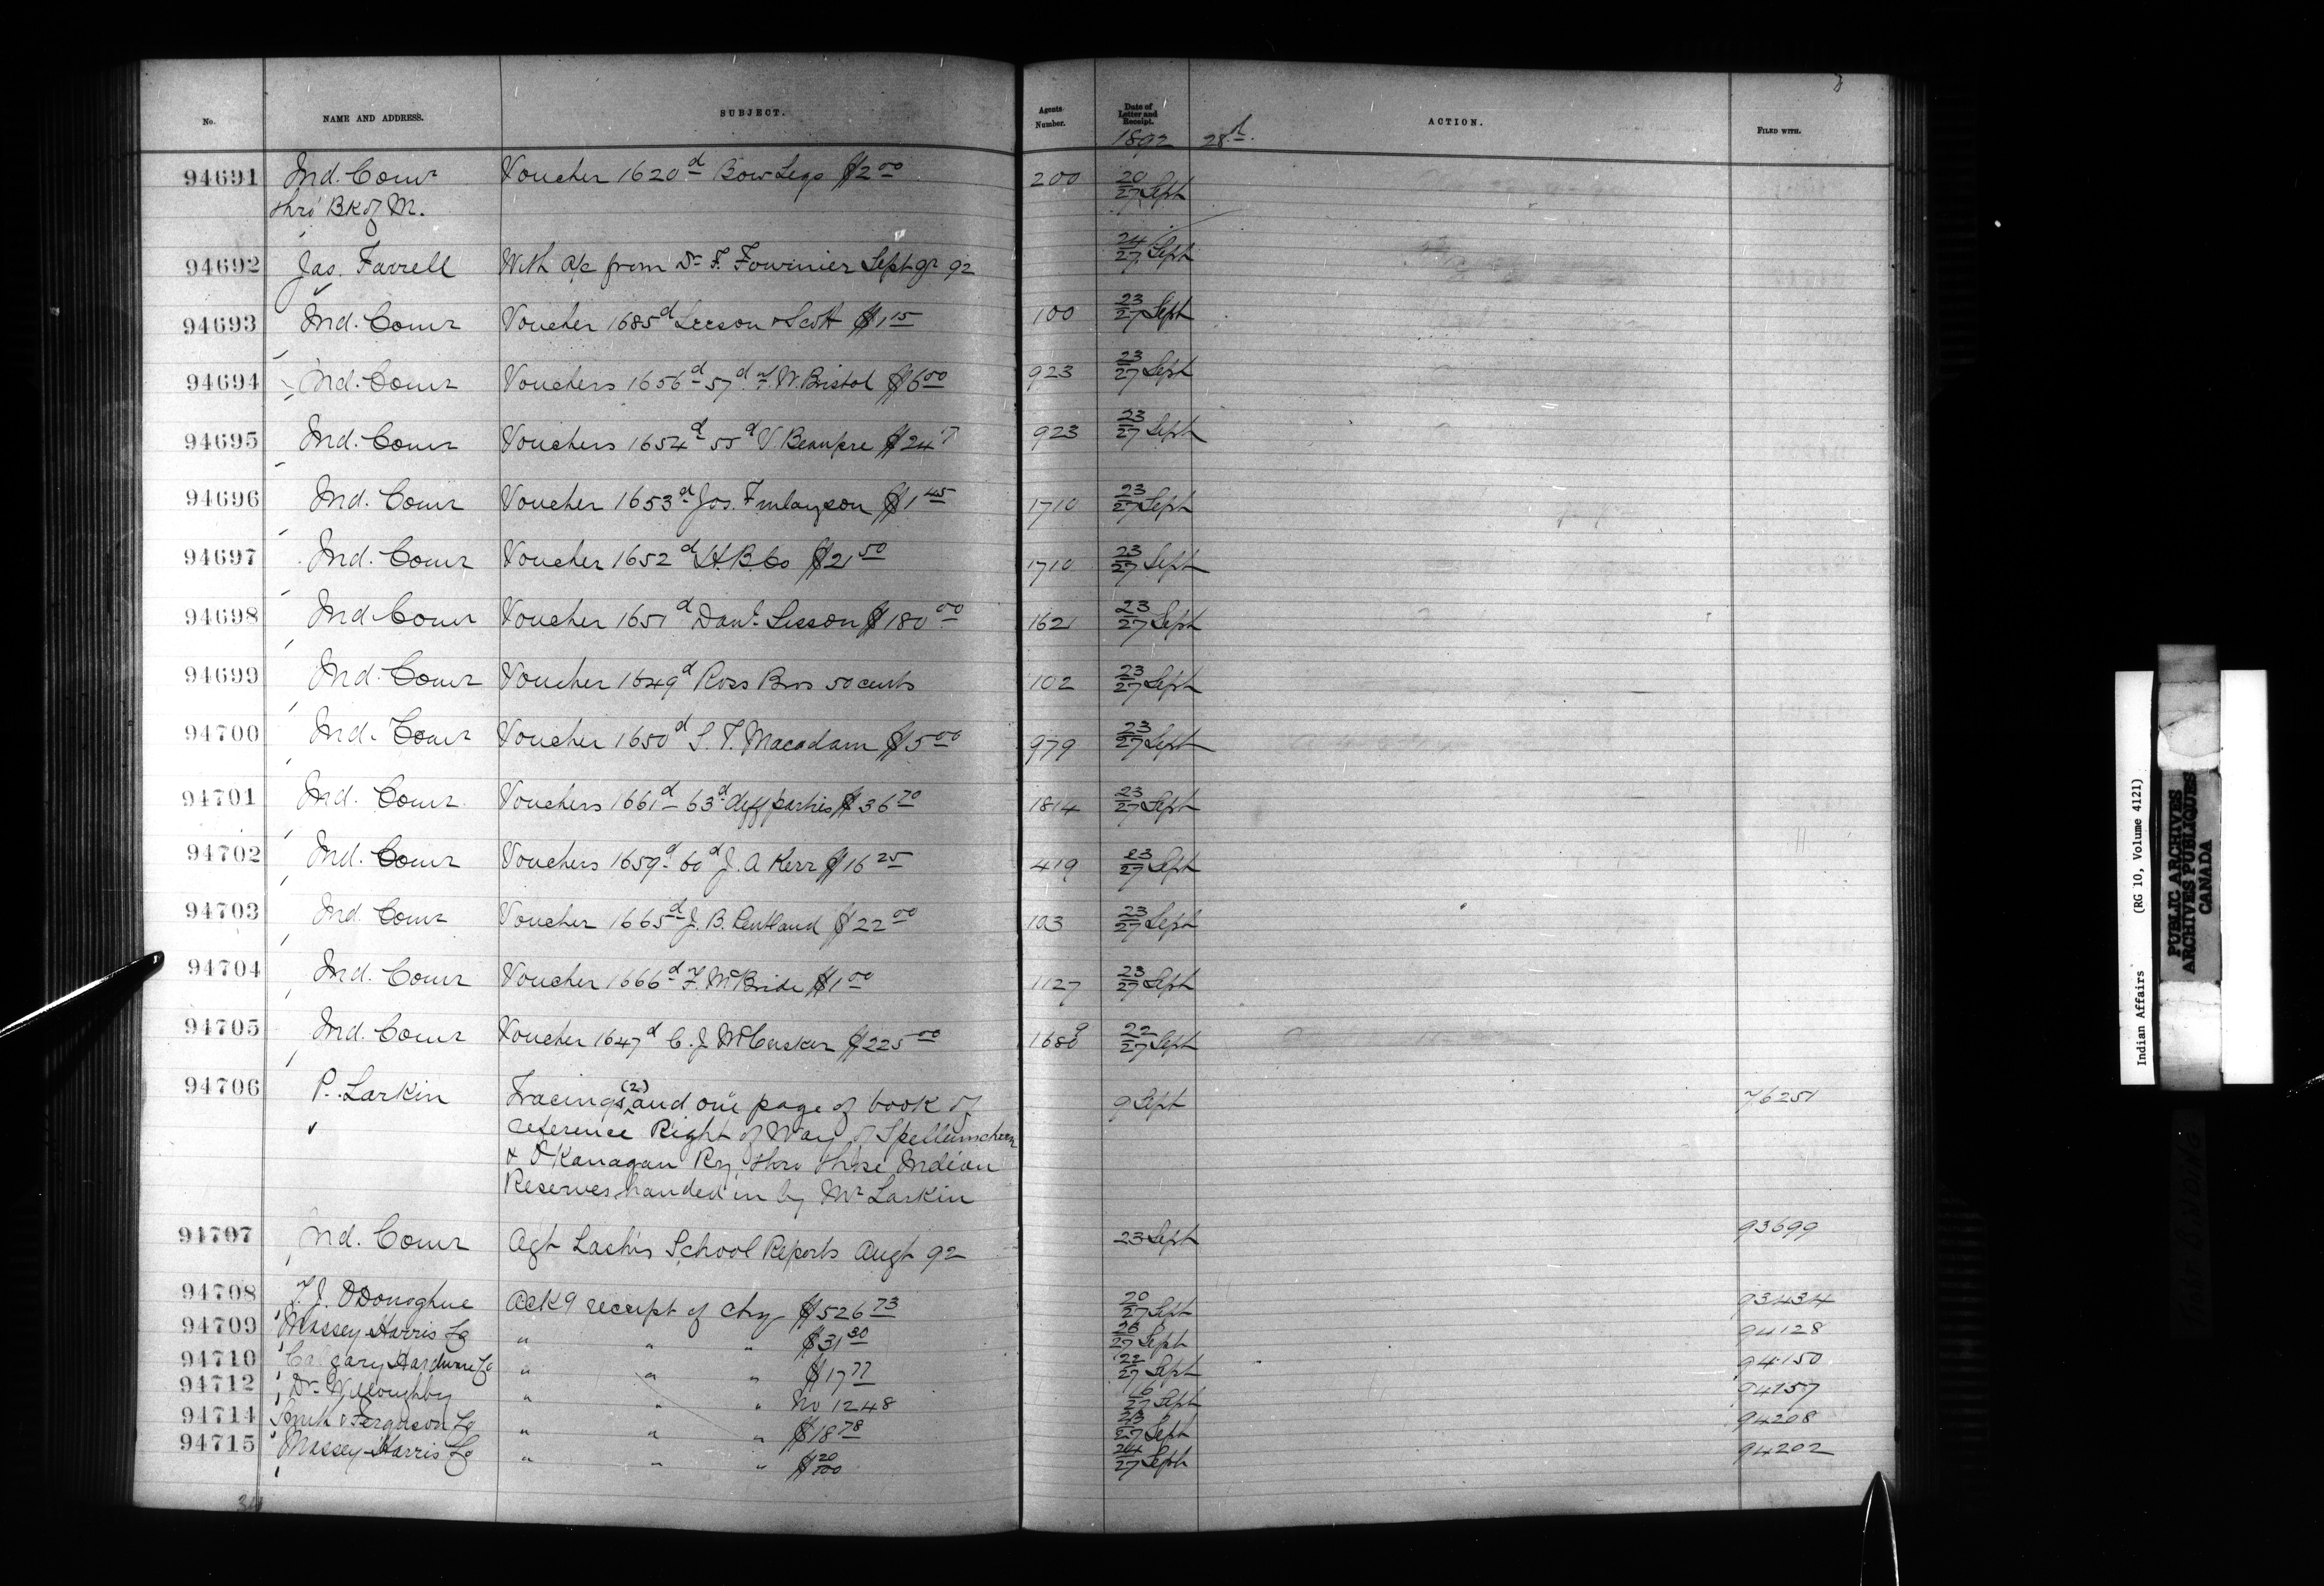 No. NAME AND ADDRESS. SUBJECT. Agents Number. Date of Letter and Receipt. ACTION. FILED WITH.
1892 28th
94691 Ind. Comr Voucher 1620d Bow Legs $2 00 200 20/27 Sept
thro' Bk of M.
94692 Jas. Farrell With a/c from Dr F. Fournier Sept qr 92 24/27 Sept
94693 Ind. Comr Voucher 1685d Leeson & Scott $1 15 100 23/27 Sept
94694 Ind. Comr Vouchers 1656d 57d F. W. Bristol $6 00 923 23/27 Sept
94695 Ind. Comr Vouchers 1654d 55d V. Beaupre $24 923 23/27 Sept
94696 Ind. Comr Voucher 1653d Jos. Finlayson $1 45 1710 23/27 Sept
94697 Ind. Comr Voucher 1652d H. B. Co $2 50 1710 23/27 Sept
94698 Ind. Comr Voucher 1651d Danl Sisson $180 00 1621 23/27 Sept
94699 Ind. Comr Voucher 1649d Ross Bros 50 cents 102 23/27 Sept
94700 Ind. Comr Voucher 1650d S. T. Macadam $5 00 979 23/27 Sept
94701 Ind. Comr Vouchers 1661d 63d diff parties $36 70 1814 23/27 Sept
94702 Ind. Comr Vouchers 1659d 60d J. A Kerr $16 25 419 23/27 Sept
94703 Ind. Comr Voucher 1665d J. B. Pentland $22 00 103 23/27 Sept
94704 Ind. Comr Voucher 1666d F. McBride $1 00 1127 23/27 Sept
94705 Ind. Comr Voucher 1647d C. J. McCusker $225 00 1680 22/27 Sept
94706 P. Larkin Tracings (2) and one page of book of 9 Sept 76251
reference Right of Way of Spellumcheen
& OKanagan Ry. thro three Indian
Reserves handed in by Mr Larkin
94707 Ind. Comr Agt Lash's School Reports Augt 92 23 Sept 93699
94708 T. J. ODonoghue Ack g receipt of chq $526 73 20/27 Sept 93434
94709 Massey Harris Co " " " $31 30 26/27 Sept 94128
94710 Calgary Hardware Co " " " $17 77 22/27 Sept 94150
94712 Dr Willoughby " " " No 1248 16/27 Sept 94157
94714 Smith & Ferguson Co " " " $18 78 23/27 Sept 94208
94715 Massey Harris Co " " " $ 20/100 24/27 Sept 94202
Indian Affairs (RG 10, Volume 4121)
PUBLIC ARCHIVES
ARCHIVES PUBLIQUES
CANADA